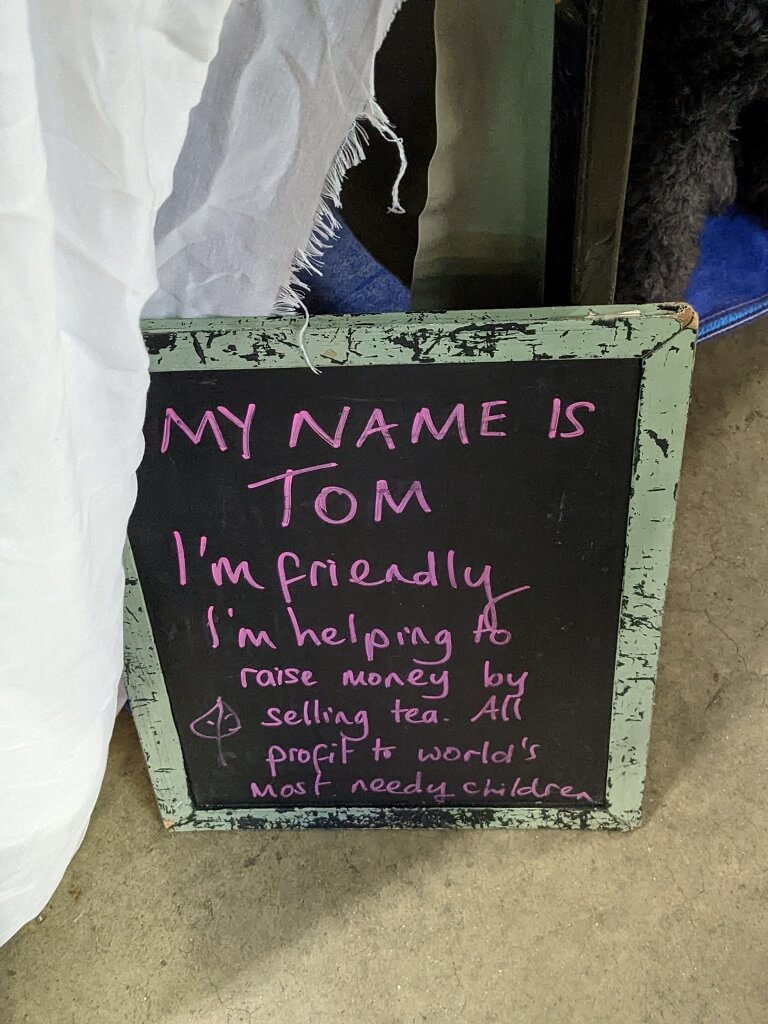 MY NAME IS
TOM
I'm friendly
I'm helping to
raise money by
selling tea. All
profit to world's
most needy children